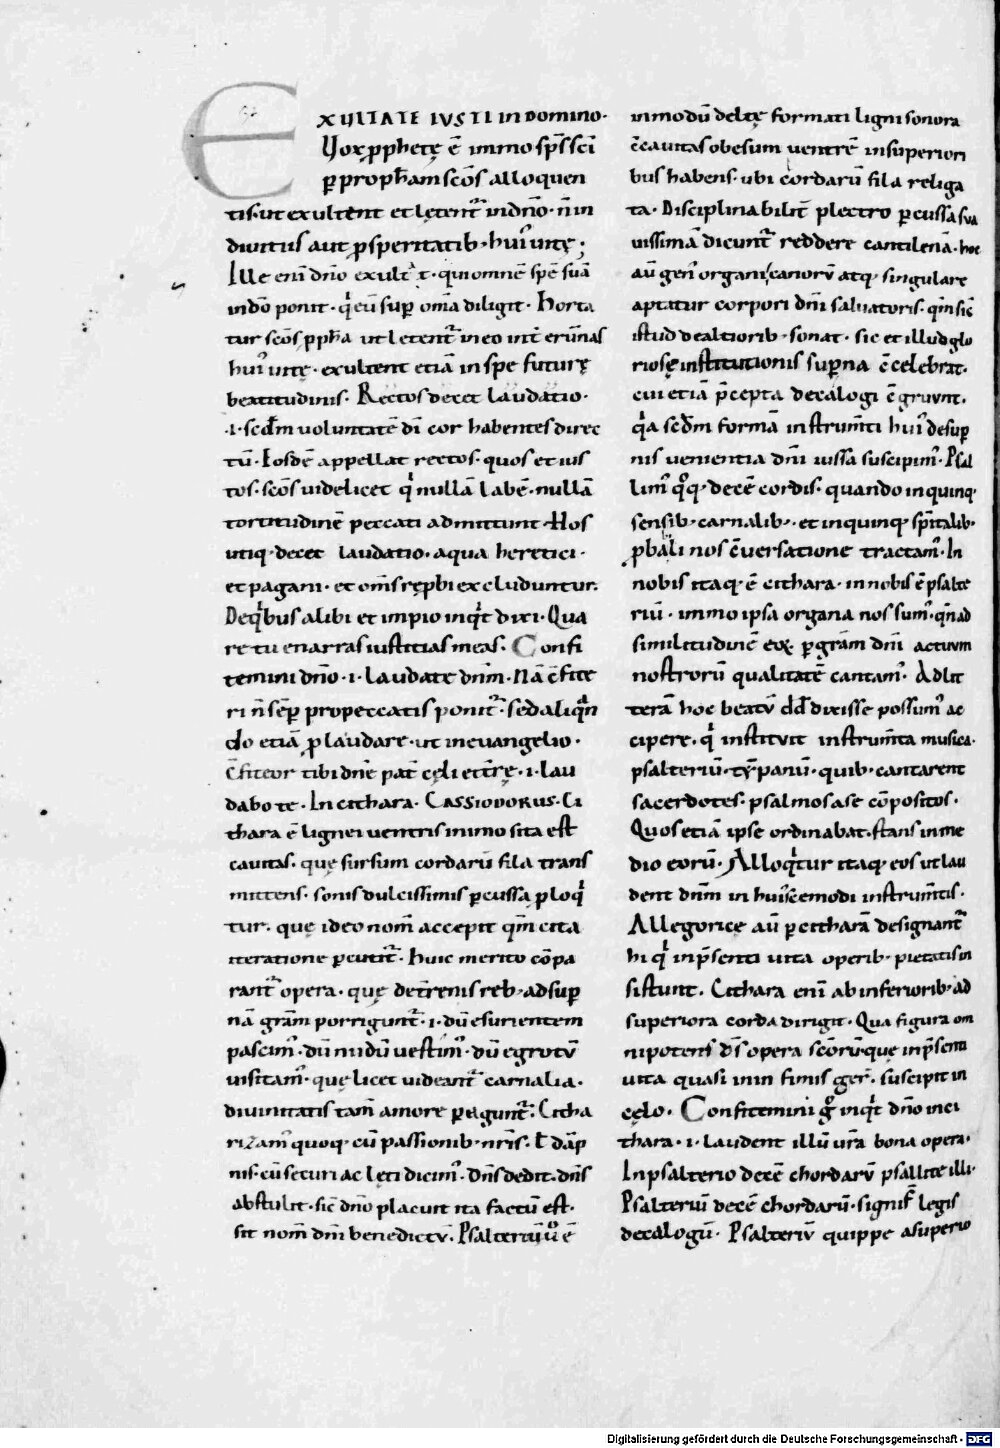 EXULTATE IUSTI in Domino·
Uox ꝓphetę ē immo sp̄s sc̄i
ꝑ proph̄am sc̄os alloquen
tis· ut exultent et lętent᷑ in dn̄o· n̄ in
diuitiis aut ꝓsperitatib· hui᷒ uitę·
Ille eni dn̄o exult̄at· qui omnē spē suā
in dn̄o ponit· qͥ eū suꝑ om̄a diligit· Horta
tur sc̄os ꝓph̄a ut lętent᷑ in eo int̄ erūnas
hui᷒ uitę· exultent etiā in spe futurę
beatitudinis· Rectos decet laudatio·
·i· scđm uoluntatē dī cor habentes direc
tū· Eosdē appellat rectos· quos et ius
tos· sc̄os uidelicet qͥ nullā labē· nullā
tortitudinē peccati admittunt· Hos
utiq· decet laudatio· a qua heretici·
et pagani· et om̄s rep̄bi excluduntur·
De qͥbus alibi et impio inqͥt dixi· Qua
re tu enarras iustitias meas· Confi
temini dn̄o·i· laudate dnm̄· Nā c̄fite
ri n̄ sēꝑ pro peccatis ponit᷑· sed aliqn̄
do etiā ꝓ laudare· ut in euangelio·
C̄fiteor tibi dn̄e pat̄ cęli et t̄rę·i· lau
dabo te· In cithara· CASSIODORUS· Ci
thara ē lignei uentris in imo sita est
cauitas· quę sursum cordarū fila trans
mittens· sonis dulcissimis ꝑcussa ꝓloqͥ
tur· quę ideo nom̄ accepit qm̄ cita
iteratione ꝑcutit᷑· Huic merito cōpa
rant᷑ opera· quę de t̄renis reb· ad suꝑ
nā gr̄am porrigunt᷑·i· dū esurientem
pascim᷒· dū nudū uestim᷒· dū egrotū
uisitam᷒· quę licet uideant᷑ carnalia·
diuinitatis tam̄ amore ꝑagunt᷑· Citha
rizam᷒ quoq· cū passionib· nr̄is· ł dāp
nis· cū securi ac lęti dicim᷒· Dn̄s dedit· dn̄s
abstulit· sic̄ dn̄o placuit ita factū est·
sit nom̄ dn̄i benedictū· Psalteriū uͦ ē
in modū deltę formati ligni sonora
c̄cauitas obesum uentrē in superiori
bus habens· ubi cordarū fila religa
ta· Disciplinabilit̄ plectro ꝑcussa sua
uissimā dicunt᷑ reddere cantilenā· hoc
aū gen᷒ organi canorū atq· singulare
aptatur corpori dn̄i saluatoris· qm̄ sic̄
istud de altiorib· sonat· sic et illud glo
riosę institutionis suꝑna c̄celebrat·
cui etiā p̄cepta decalogi c̄gruunt·
qͥa scđm formā instrum̄ti hui᷒ desuꝑ
nis uenientia dn̄i iussa suscipim᷒· Psal
lim᷒ qͦq· decē cordis· quando in quinq·
sensib· carnalib·· et in quinq· sp̄italib·
ꝓbabili nos c̄uersatione tractam᷒· In
nobis itaq· ē cithara· in nobis ē psalte
riū· immo ipsa organa nos sum᷒· qn̄ ad
similitudinē eoꝝ ꝑ gr̄am dn̄i actuum
nostrorū qualitatē cantam᷒· Ad lit
terā hoc beatū dd̄ dixisse possum᷒ ac
cipere· qͥ instituit instrum̄ta musica·
psalteriū· tẏpanū· quib· cantarent
sacerdotes· psalmos a se cōpositos·
Quos etiā ipse ordinabat· stans in me
dio eorū· Alloqͥtur itaq· eos ut lau
dent dnm̄ in hui᷒cemodi instrum̄tis·
Allegorice aū ꝑ citharā designant᷑
hi qͥ in p̄senti uita operib· pietatis in
sistunt· Cithara enī ab inferiorib· ad
superiora corda dirigit· Qua figura om
nipotens dš opera sc̄orū· que in p̄senti
uita quasi in infimis ger᷒· suscipit in
cęlo· Confitemini gͦ inqͥt dn̄o in ci
thara·i· laudent illū ura bona opera·
In psalterio decē chordarū psallite illi·
Psalteriū decē chordarū· signif̄ legis
decalogū· Psalteriū quippe a superio
Digitalisierung gefördert durch die Deutsche Forschungsgemeinschaft - DFG